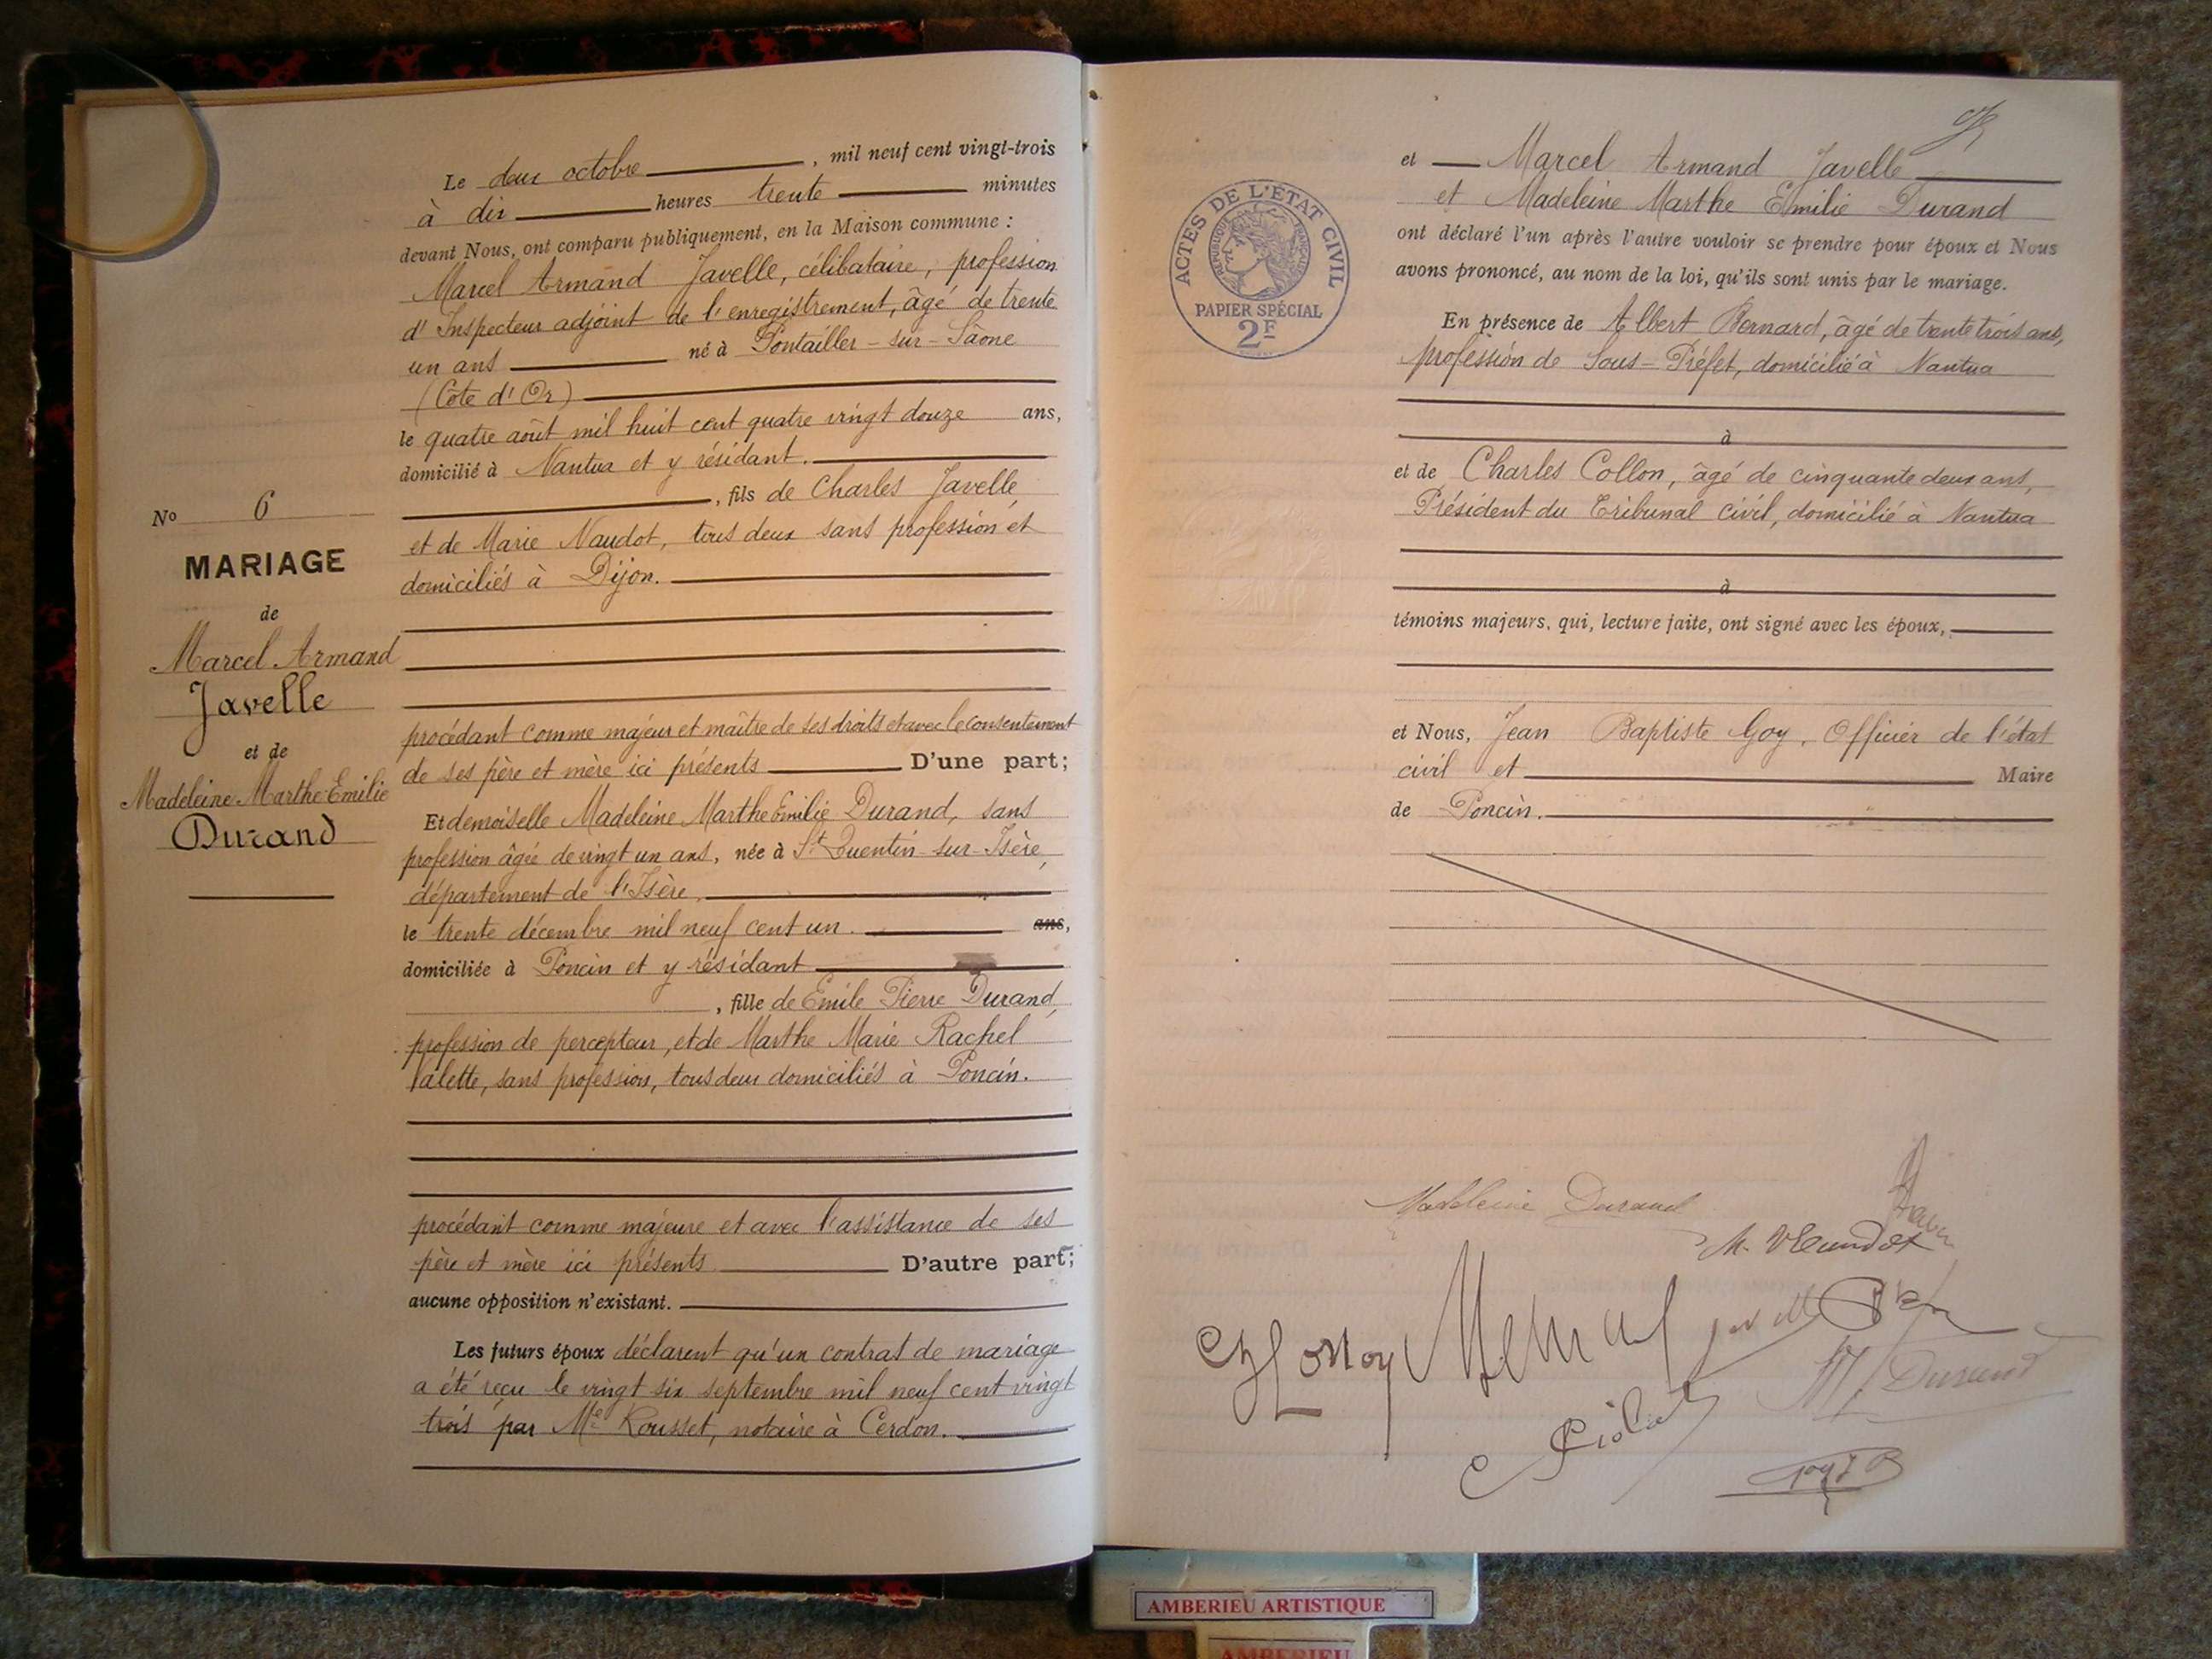 Le deux octobre, mil neuf cent vingt-trois
à dix heures trente minutes
devant Nous, ont comparu publiquement, en la Maison commune :
Marcel Armand Javelle, célibataire, profession
d'Inspecteur adjoint de l'enregistrement, âgé de trente
un ans né à Pontailler-sur-Saône
(Côte d'Or)
le quatre août mil huit cent quatre vingt douze ans,
domicilié à Nantua et y résidant.
, fils de Charles Javelle
et de Marie Naudot, tous deux sans profession et
domiciliés à Dijon.
No 6
MARIAGE
de
Marcel Armand
Javelle
et de
Madeleine Marthe Emilie
Durand
procédant comme majeur et maître de ses droits et avec le consentement
de ses père et mère ici présents D'une part;
Et demoiselle Madeleine Marthe Emilie Durand, sans
profession âgée de vingt un ans, née à St Quentin-sur-Isère,
département de l'Isère.
le trente décembre mil neuf cent un. ans,
domiciliée à Poncin et y résidant
, fille de Emile Pierre Durand,
profession de percepteur, et de Marthe Marie Rachel
Valette, sans profession, tous deux domiciliés à Poncin.
procédant comme majeure et avec l'assistance de ses
père et mère ici présents D'autre part;
aucune opposition n'existant.
Les futurs époux déclarent qu'un contrat de mariage
a été reçu le vingt six septembre mil neuf cent vingt
trois par Me Rousset, notaire à Cerdon.
ACTES DE L'ÉTAT CIVIL
RÉPUBLIQUE FRANÇAISE
PAPIER SPÉCIAL
2F
et Marcel Armand Javelle
et Madeleine Marthe Emilie Durand
ont déclaré l'un après l'autre vouloir se prendre pour époux et Nous
avons prononcé, au nom de la loi, qu'ils sont unis par le mariage.
En présence de Albert Bernard, âgé de trente trois ans,
profession de Sous-Préfet, domicilié à Nantua
à
et de Charles Collon, âgé de cinquante deux ans,
Président du Tribunal civil, domicilié à Nantua
à
témoins majeurs, qui, lecture faite, ont signé avec les époux,
et Nous, Jean Baptiste Goy, Officier de l'état
civil et Maire
de Poncin.
Madeleine Durand
M. Naudot
M Durand
Goy J B
AMBERIEU ARTISTIQUE
AMBERIEU